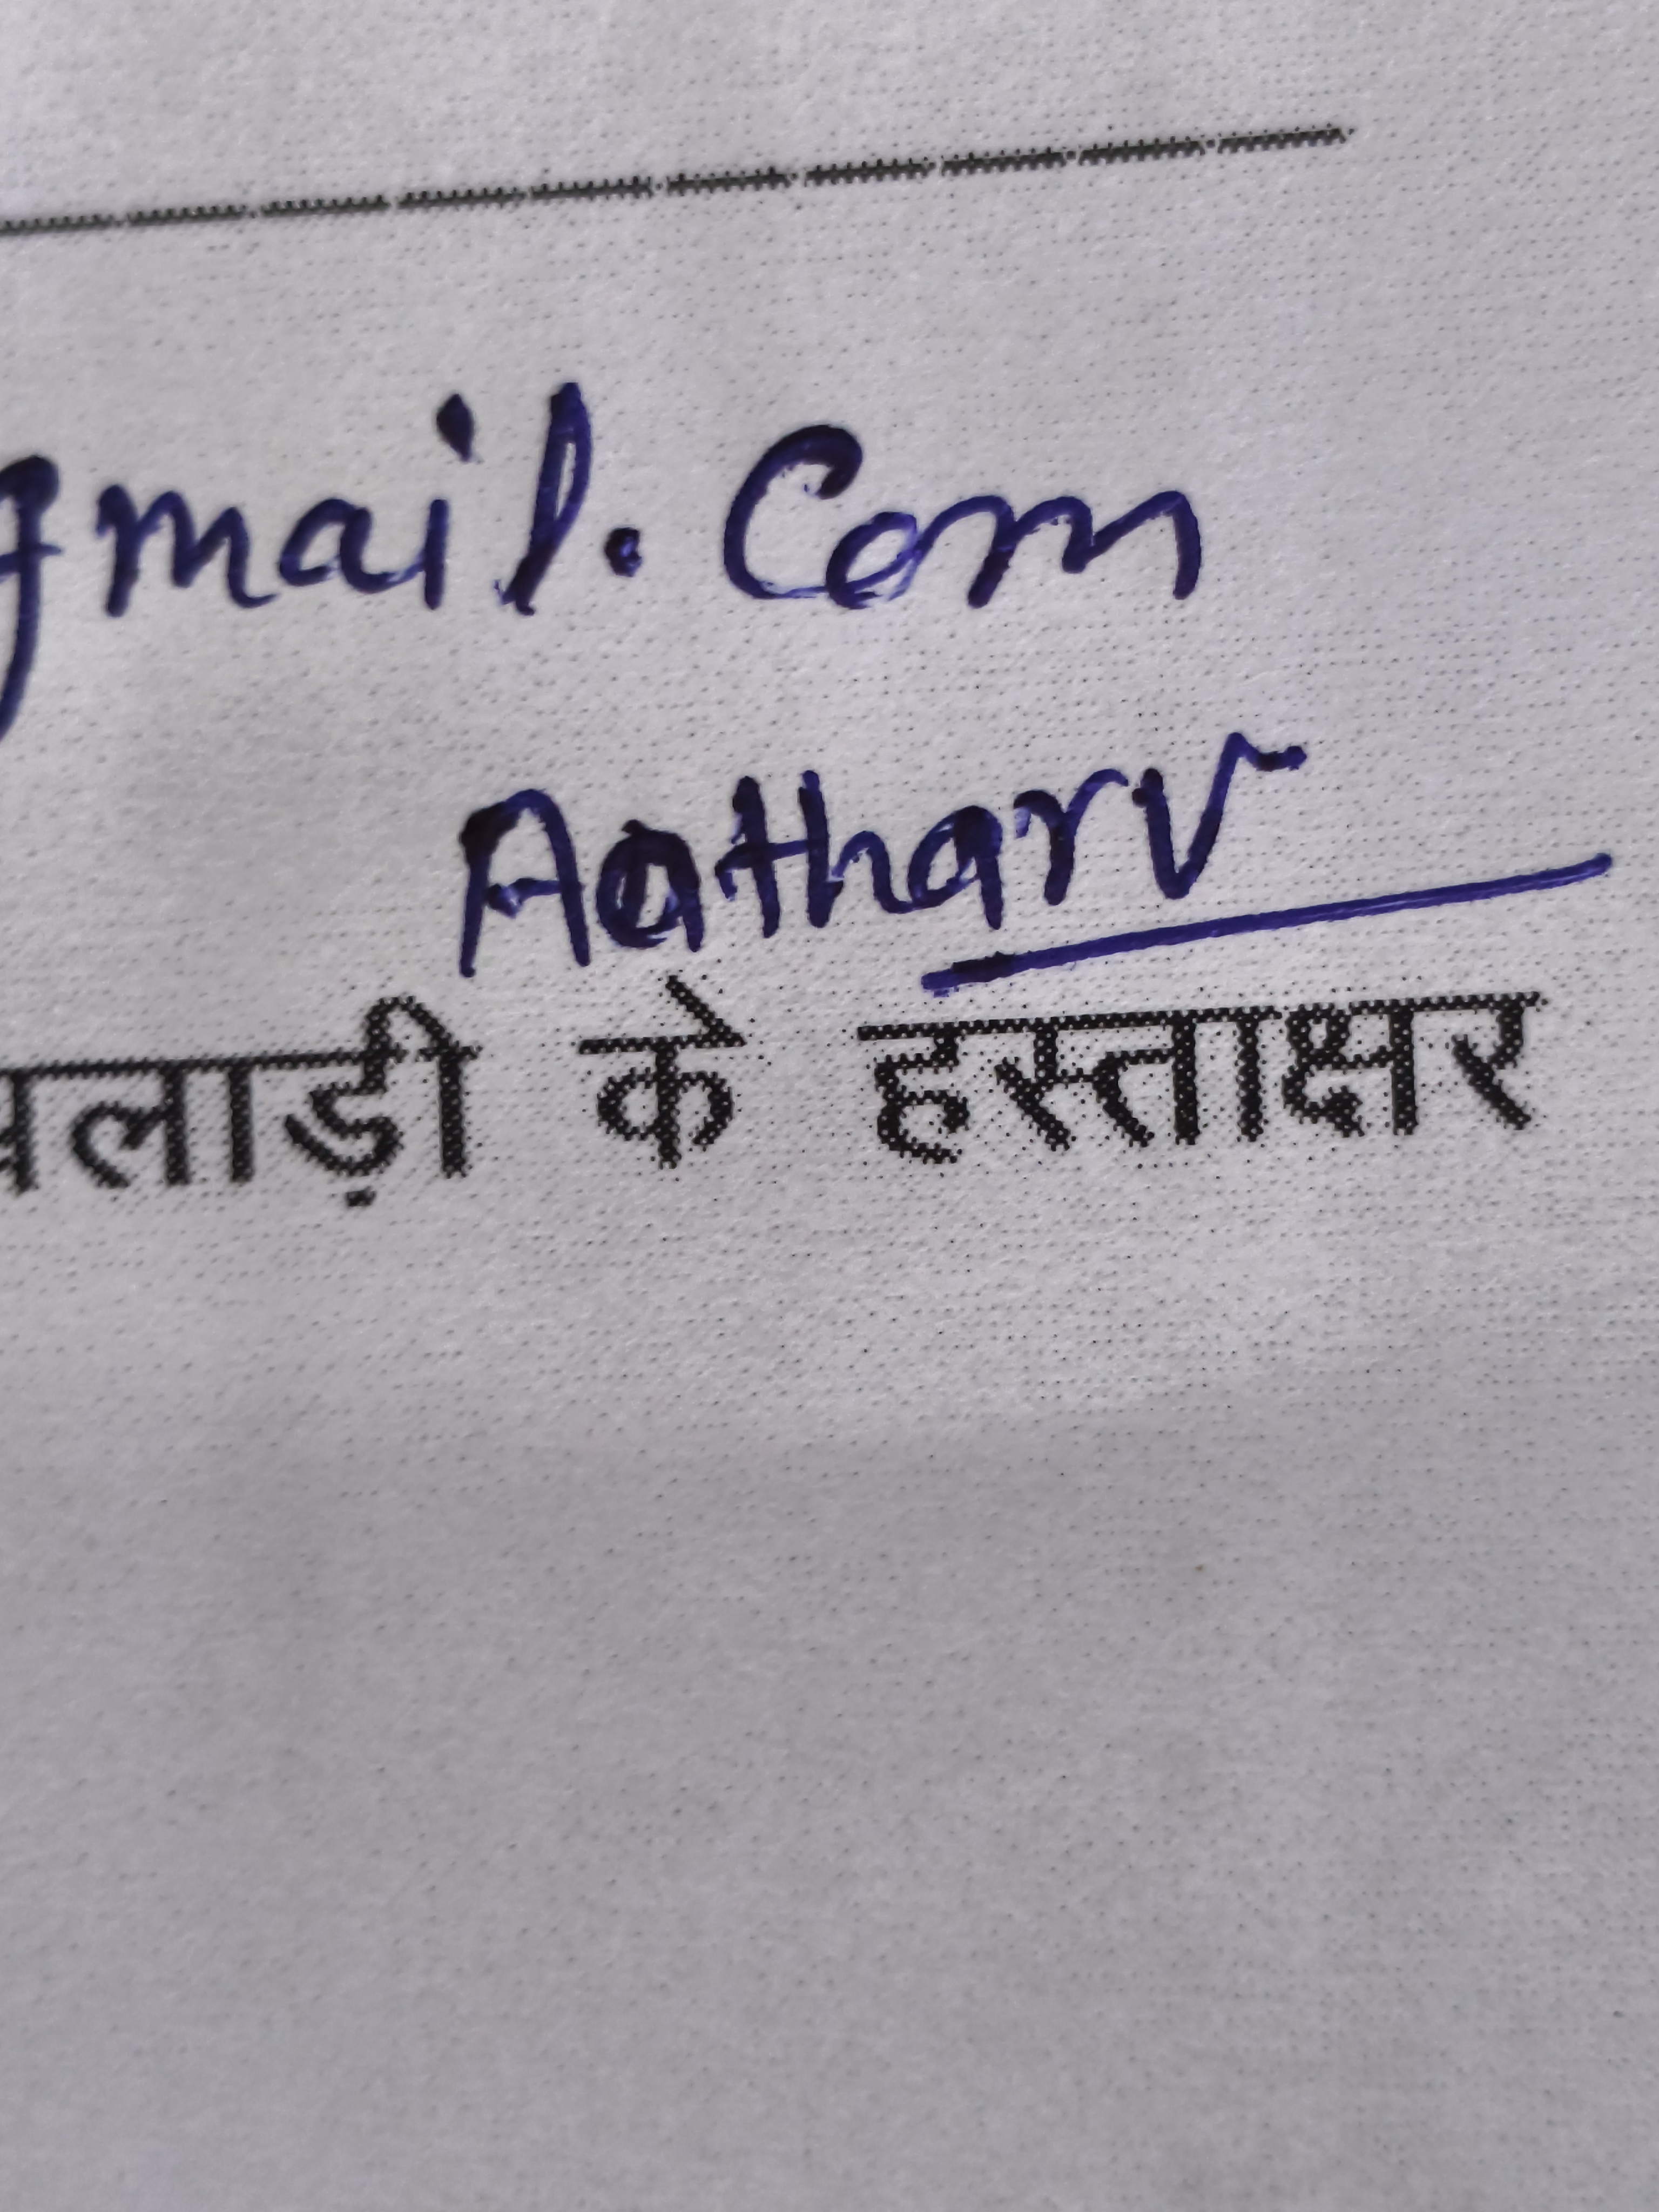 gmail.com
Aatharv
खिलाड़ी के हस्ताक्षर